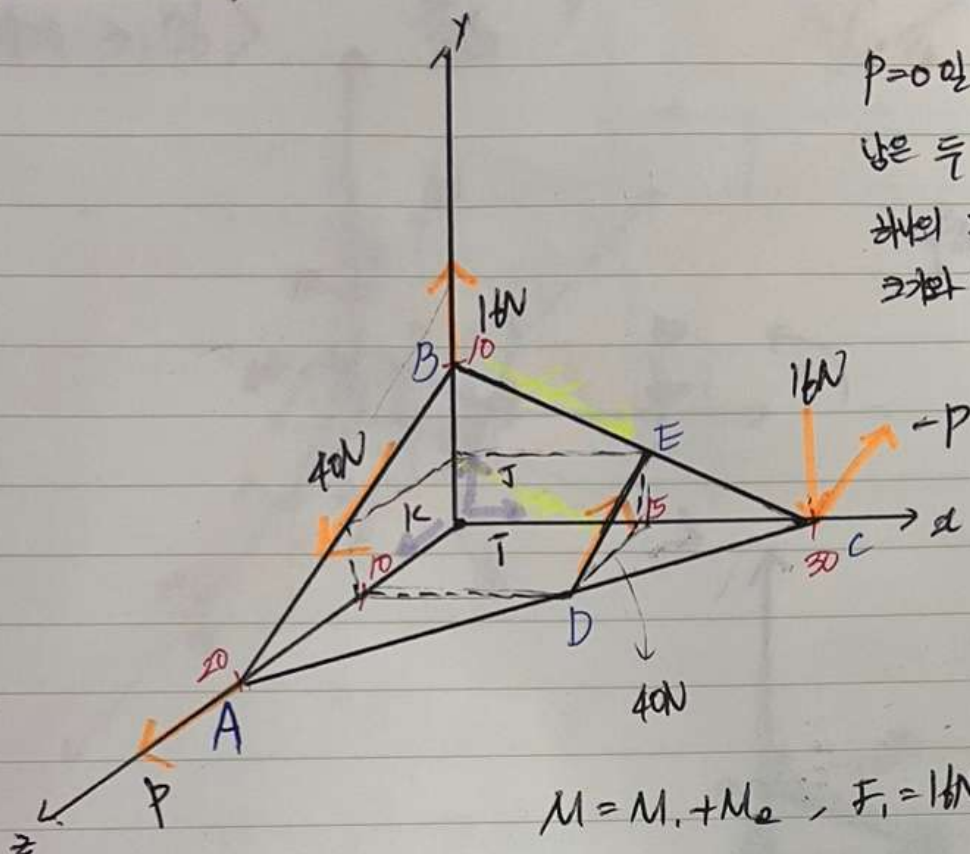 y
P=0 일
남은 두
하나의
크기와
16N
B 10
16N
-P
E
40N
J
K
15
x
10
I
30 C
D
20
A
40N
P
z
M = M₁ + M₂ ; F₁ = 16N